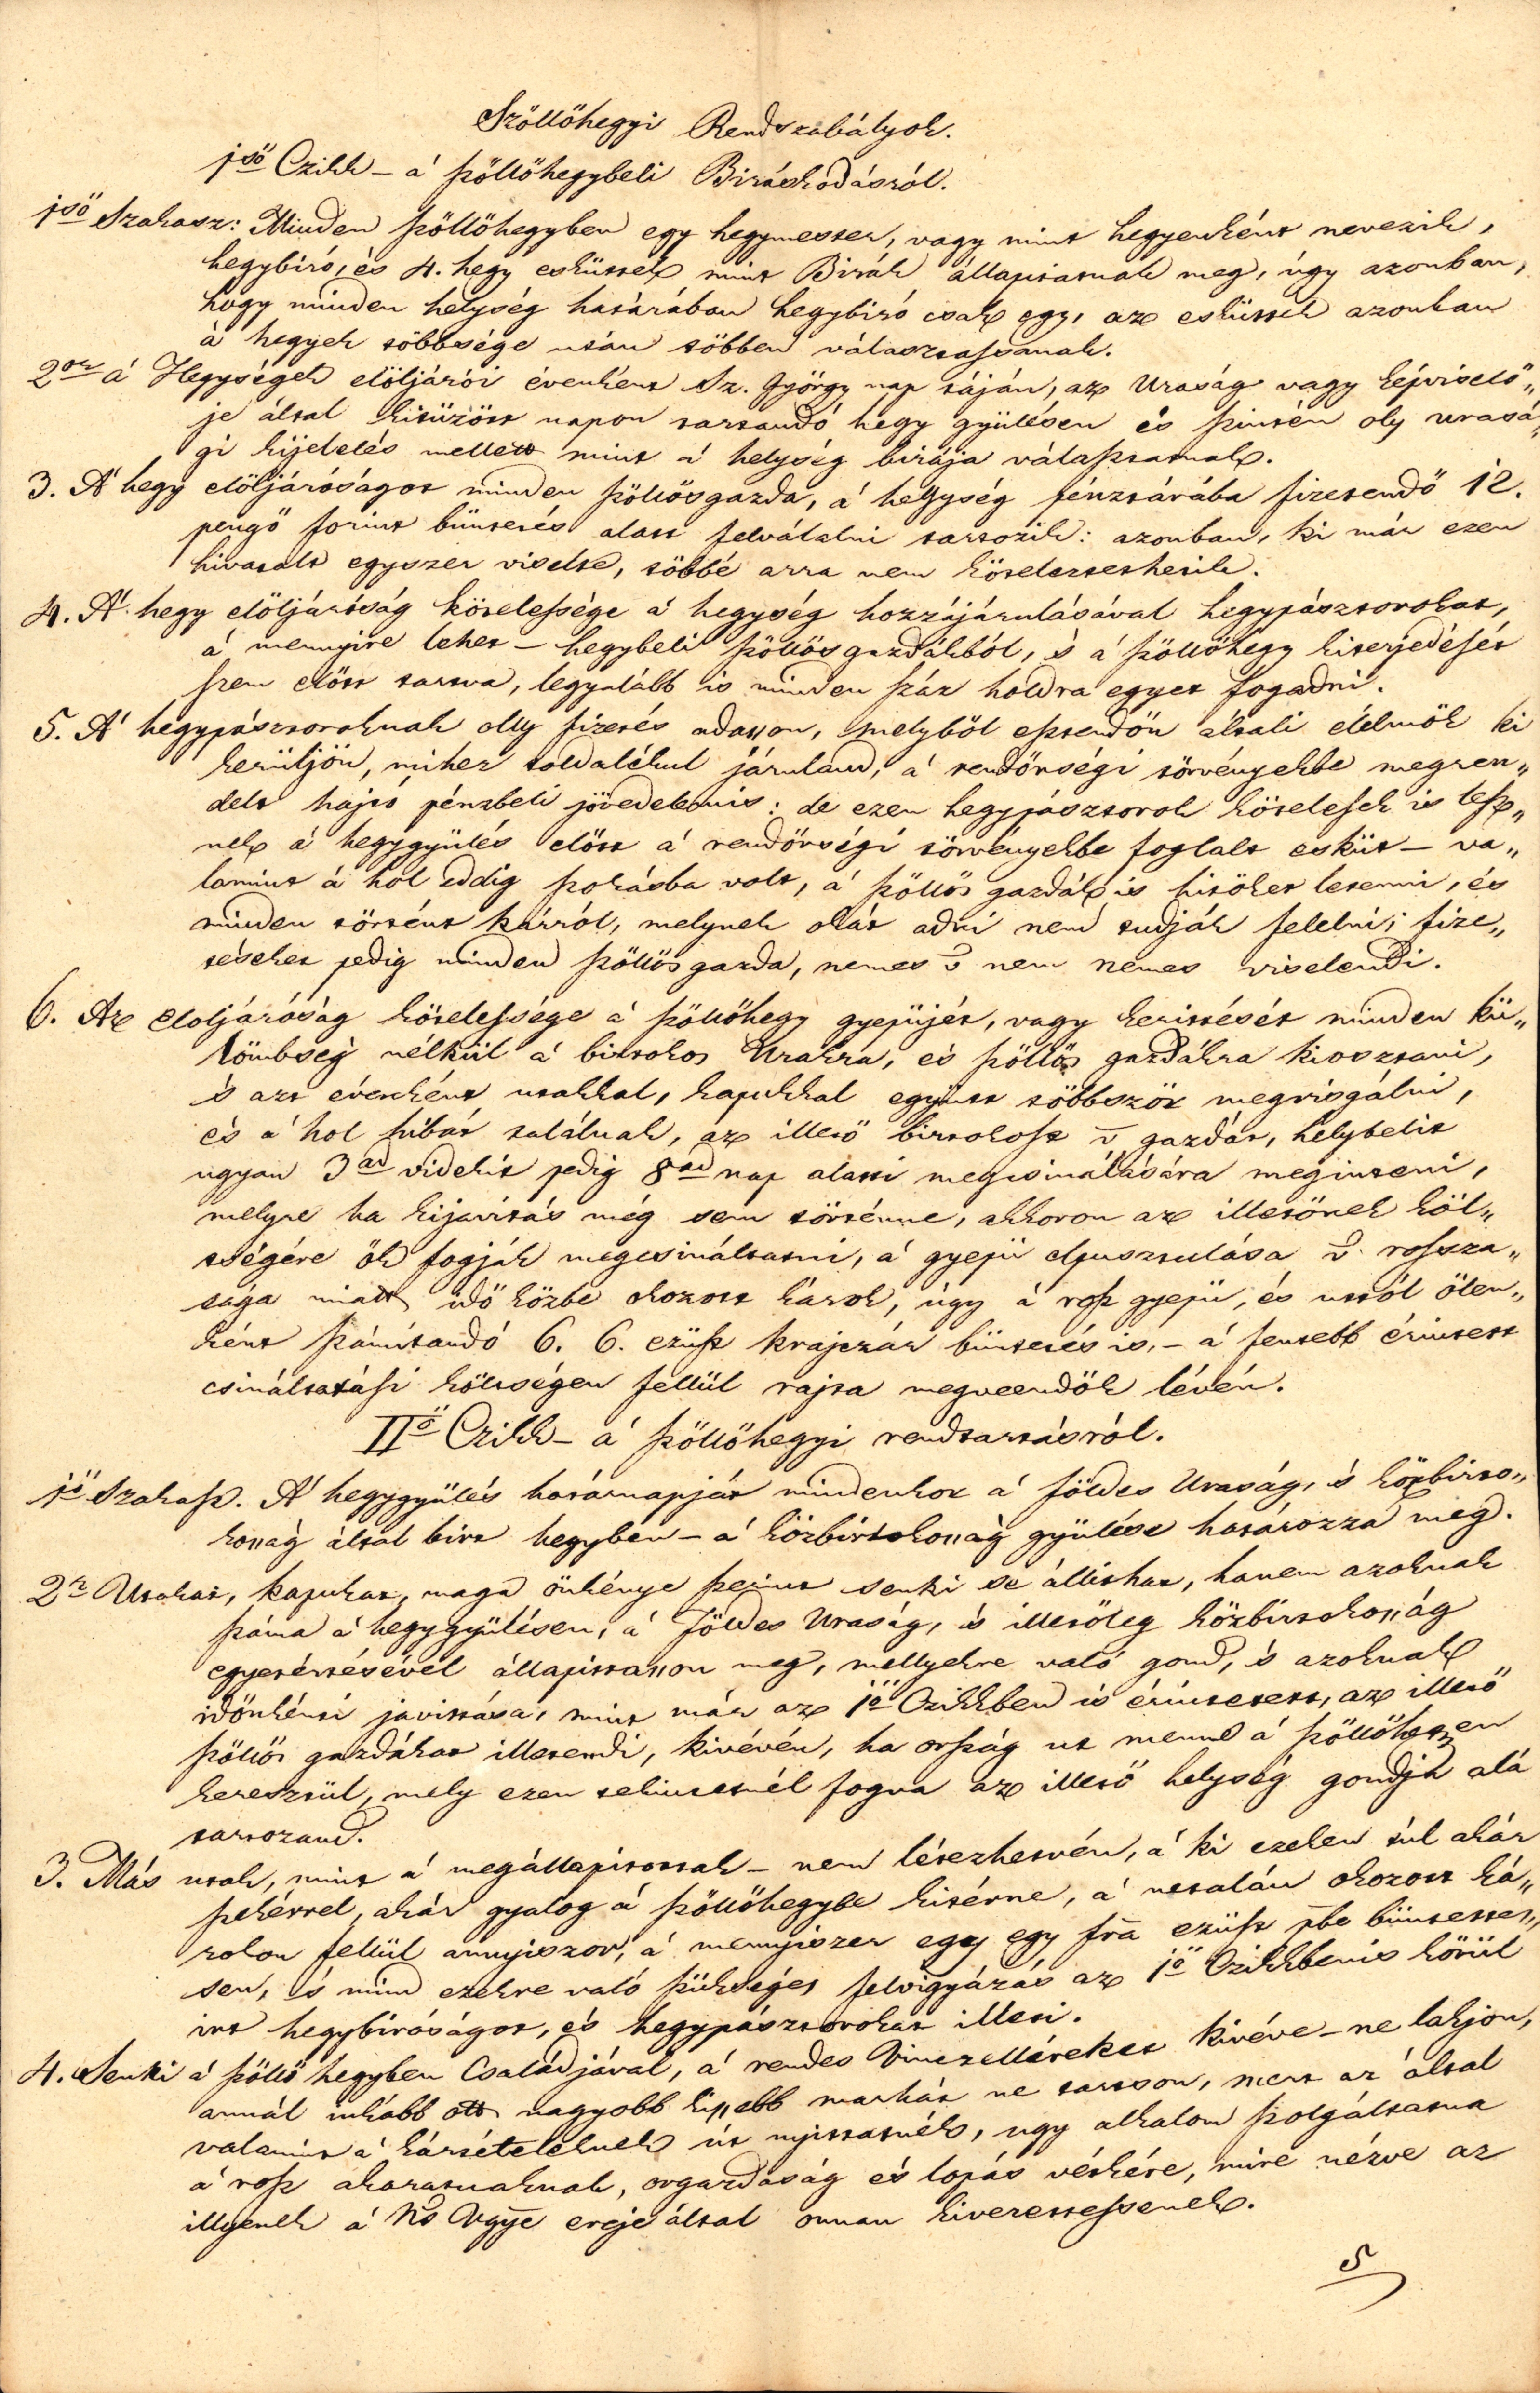 Szöllöhegyi Rendszabályok.
1ső Czikk – á szöllöhegybeli Biráskodásról.
1ső Szakasz: Minden szöllöhegyben egy hegymester, vagy mint hegyenként nevezik,
hegybiró, és 4. hegy esküttek mint Birák állapitatnak meg, úgy azonban,
hogy minden helység határában hegybiró csak egy, az esküttek azonban
á hegyek többsége után többen választassanak.
2or á Hegységek elöljárói évenként Sz. György nap táján, az Uraság vagy képviselő„
je által kitüzött napon tartandó hegy gyülésen és szintén oly urasá„
gi kijelelés mellett mint á helység birája választatnak.
3. Á hegy elöljáróságot minden szöllösgazda, á hegység pénztárába fizetendő 12.
pengő forint büntetés alatt felválalni tartozik: azonban, ki már ezen
hivatalt egyszer viselte, többé arra nem köteleztethetik.
4. Á hegy elöljáróság kötelessége á hegység hozzájárulásával hegypásztorokat,
á mennyire lehet – hegybeli szöllös gazdákból, 's á szöllöhegy kiterjedését
szem elött tartva, legalább is minden száz holdra egyet fogadni.
5. Á hegypásztoroknak olly fizetés adasson, melyböl esztendőn átali élelmök ki
kerüljön, mihez toldalékul járuland, á rendőrségi törvényekbe megren„
delt hajtó pénzbeli jövedelemis: de ezen hegypásztorok kötelesek is lesz„
nek á hegygyülés elött á rendőrségi törvényekbe foglalt esküt – va„
lamint á hol eddig szokásba volt, á szöllös gazdák is hitöket letenni, és
minden történt kárról, melynek okát adni nem tudják felelni; fize„
téseket pedig minden szöllös gazda, nemes v nem nemes viselendi.
6. Az elöljáróság kötelessége á szöllöhegy gyepüjét, vagy keritését minden kü„
lömbség nélkül á birtokos Urakra, és szöllös gazdákra kiosztani,
's azt évenként utakkal, kapukkal együtt többször megvisgálni,
és á hol hibát találnak, az illető birtokost v gazdát, helybelit
ugyan 3ad vidékit pedig 8ad nap alatti megcsinálására meginteni,
melyre ha kijavitás még sem történne, akkoron az illetőnek köl„
tségére ök fogják megcsináltatni, á gyepü elpusztulása v. rossza„
sága miatt idö közbe okozott károk, úgy á rosz gyepü, és uttól ölen„
ként számítandó 6. 6. ezüst krajczár büntetés is, – á fentebb érintett
csináltatási költségen fellül rajta megveendők lévén.
IIő Czikk – á szöllöhegyi rendtartásról.
1ő Szakasz. Á hegygyülés határnapját mindenkor á földes Uraság, 's közbirto„
kosság által birt hegyben – á közbirtokosság gyülése határozza meg.
2r Utakat, kapukat, maga önkénye szerint senki se állithat, hanem azoknak
száma á hegygyülésen, á földes Uraság, 's illetőleg közbirtokosság
egyetértésével állapittasson meg, mellyekre való gond, 's azoknak
időnkénti javitása, mint már az 1ő Czikkben is érintetett, az illető
szöllös gazdákat illetendi, kivévén, ha ország ut menne á szöllöhegyen
keresztül, mely ezen tekintetnél fogva az illető helység gondja alá
tartozand.
3. Más utak, mint á megállapitottak – nem létezhetvén, á ki ezeken túl akár
szekérrel, akár gyalog á szöllöhegybe kitérne, á netalán okozott ká„
rokon fellül annyiszor, á mennyiszer egy egy fra ezüst pbe büntettes„
sen, 's mind ezekre való szükséges felvigyázás az 1ő Czikkbenis körül
irt hegybiróságot, és hegypásztorokat illeti.
4. Senki á szöllöhegyben Családjával, á rendes Vinczelléreket kivéve – ne lakjon,
annál inkább ott nagyobb kissebb marhát ne tartson, mert az által
valamint á kártételeknek út nyittatnék, ugy alkalom szolgáltatna
á rosz akaratuaknak, orgazdaság és lopás vétkére, mire nézve az
illyenek á Ns Vgye ereje által onnan kiverettessenek.
5